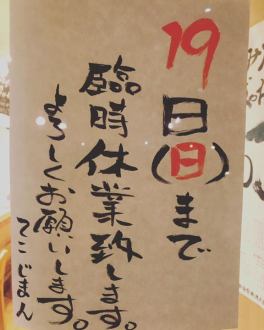 19日(日)まで
臨時休業致します。
よろしくお願いします。
てこじまん